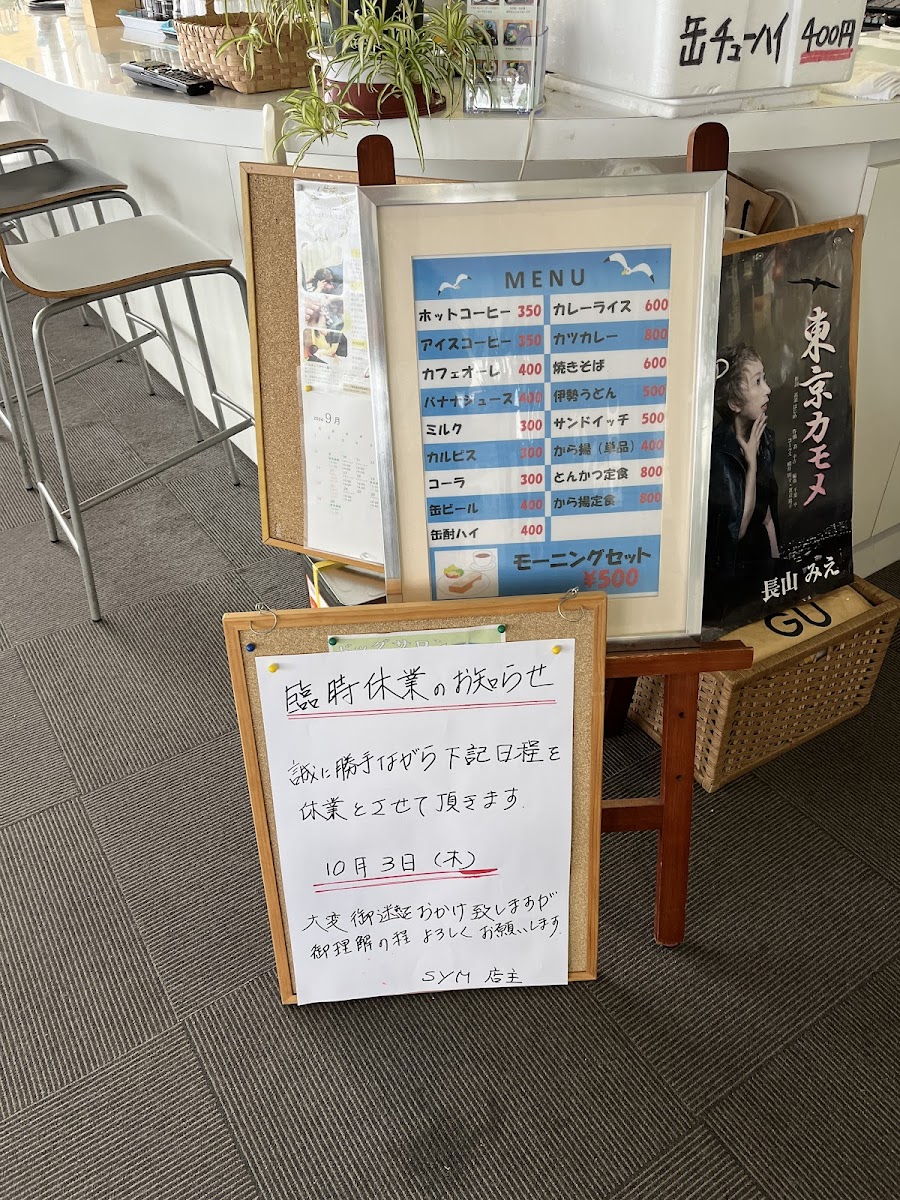 缶チューハイ 400円
MENU
ホットコーヒー 350
アイスコーヒー 350
カフェオーレ 400
バナナジュース 400
ミルク 300
カルピス 300
コーラ 300
缶ビール 400
缶酎ハイ 400
カレーライス 600
カツカレー 800
焼きそば 600
伊勢うどん 500
サンドイッチ 500
から揚（単品） 400
とんかつ定食 800
から揚定食 800
モーニングセット
¥500
2024 9月
東京カモメ
長山 みえ
GU
臨時休業のお知らせ
誠に勝手ながら下記日程を
休業とさせて頂きます.
10月3日(木)
大変御迷惑おかけ致しますが
御理解の程よろしくお願いします.
SYM 店主